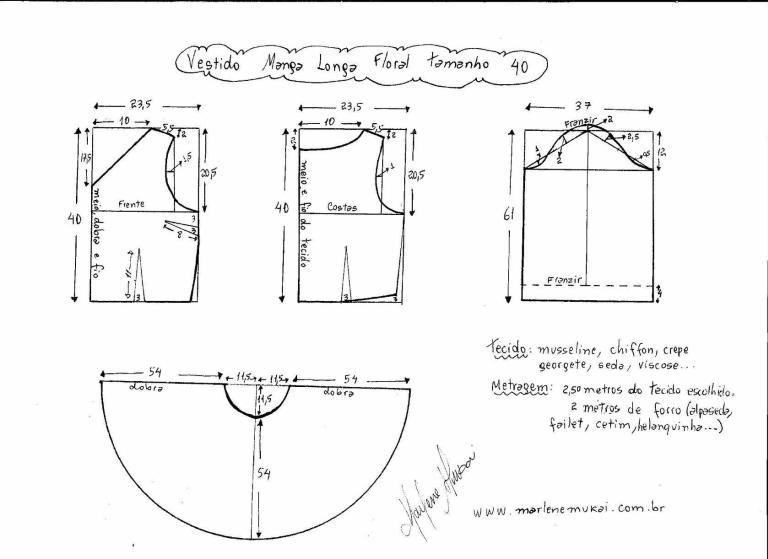 Vestido Manga Longa Floral tamanho 40
23,5
10
5,5
2
17,5
1,5
20,5
40
Frente
meio, dobra e fio
3
8
3
11
3
23,5
10
5,5
2
2
1
20,5
40
Costas
meio e fio do tecido
3
3
37
Franzir
2
2,5
1
2
0,5
12
61
Franzir
4
54
11,5
11,5
54
dobra
dobra
11,5
54
Tecido: musseline, chiffon, crepe
georgete, seda, viscose...
Metragem: 2,50 metros do tecido escolhido.
2 metros de forro (alpaseda,
failet, cetim, helanquinha...)
Marlene Mukai
www.marlenemukai.com.br